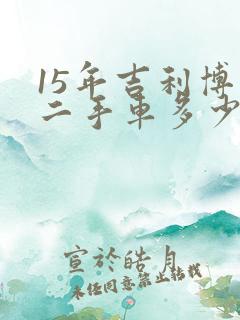 15年吉利博
二手车多少
宣於皓月
未经同意禁止转载